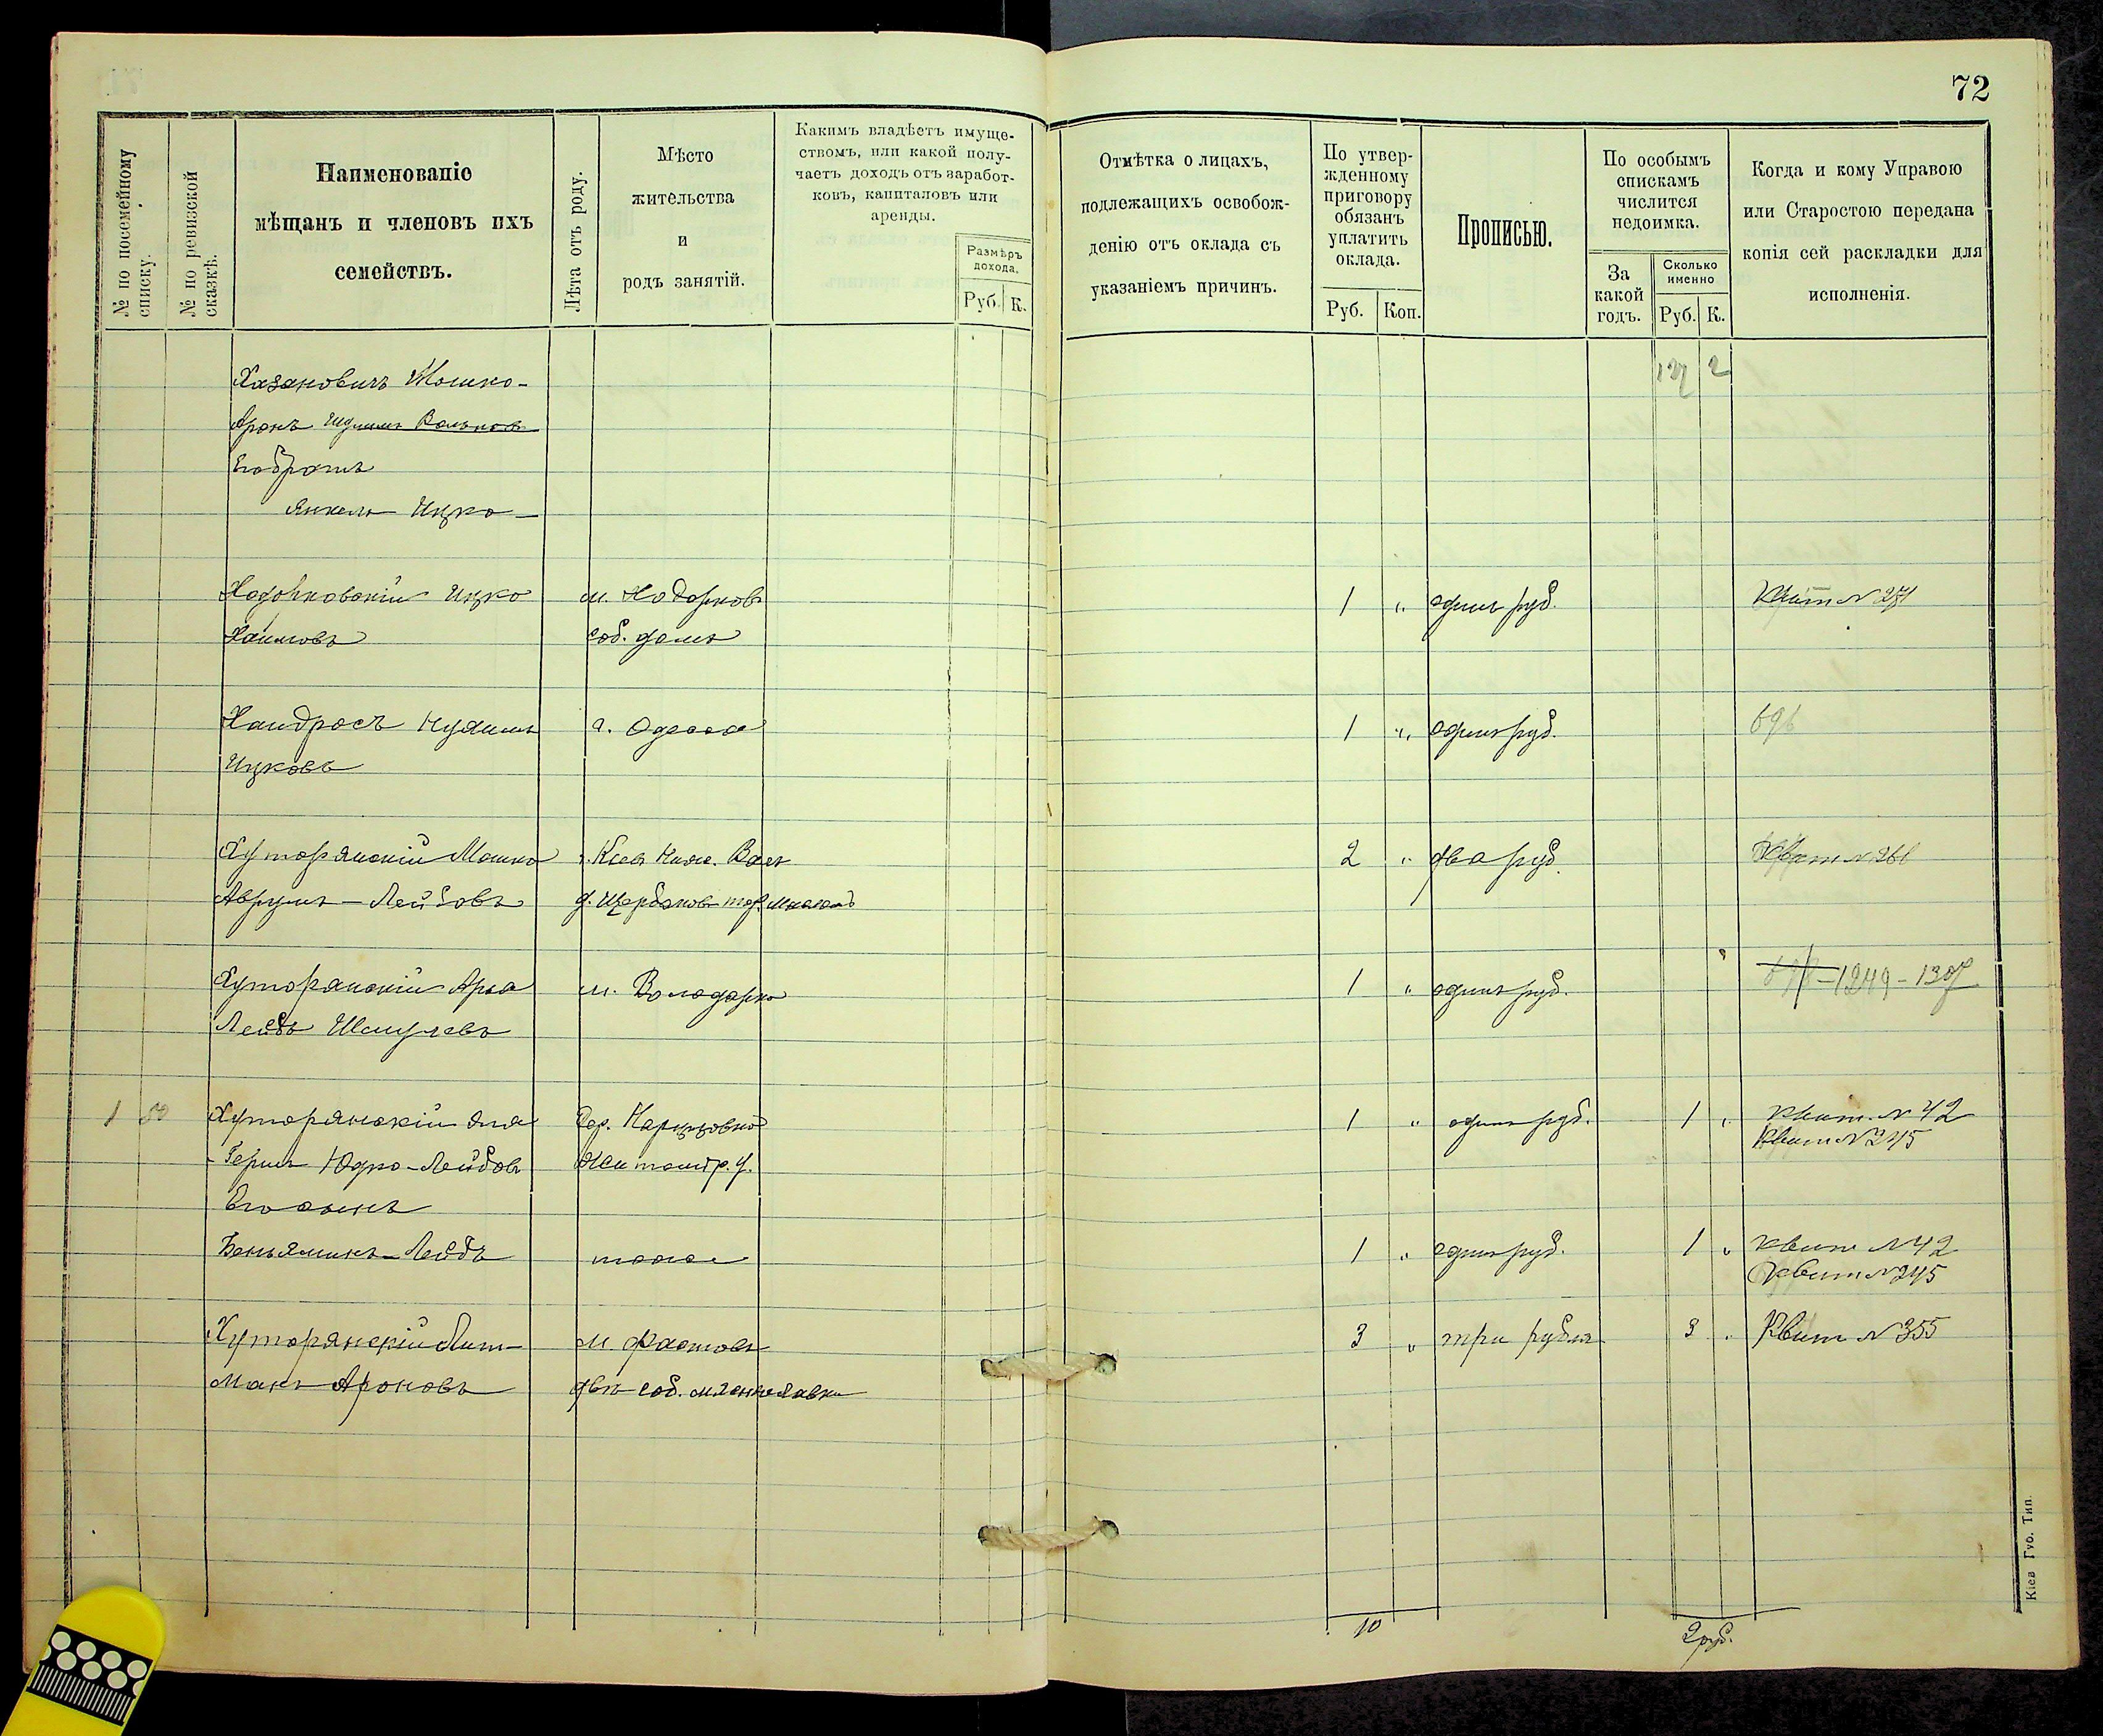 72
№ по посемейному списку.
№ по ревизской сказкѣ.
Наименованіе
мѣщанъ и членовъ ихъ
семействъ.
Лѣта отъ роду.
Мѣсто
жительства
и
родъ занятій.
Какимъ владѣетъ имуще-
ствомъ, или какой полу-
чаетъ доходъ отъ заработ-
ковъ, капиталовъ или
аренды.
Размѣръ
дохода.
Руб. К.
Отмѣтка о лицахъ,
подлежащихъ освобож-
денію отъ оклада съ
указаніемъ причинъ.
По утвер-
жденному
приговору
обязанъ
уплатить
оклада.
Руб. Коп.
Прописью.
По особымъ
спискамъ
числится
недоимка.
За
какой
годъ.
Сколько
именно
Руб. К.
Когда и кому Управою
или Старостою передана
копія сей раскладки для
исполненія.
Хазановичъ Мошко- 127 2
Аронъ
Его братъ
Янкель Ицко-
Ходорковскій Ицко м. Ходорковъ 1 " одинъ руб. Квит № 271
Хаимовъ соб. домъ
Хандросъ Нухимъ г. Одесса 1 " одинъ руб. 696
Ицковъ
Хуторянскій Мошко г. Кіевъ Ниж. Валъ 2 " два руб.
Аврумъ-Лейбовъ д. Щербакова
Хуторянскій Арья м. Володарка 1 " одинъ руб. 1249-1307
Лейбъ Шмулевъ
1 50 Хуторянскій Эля Дер. 1 " одинъ руб. 1 " Квит. № 42
-Гершъ Юдко-Лейбовъ Житомір. у. Квит № 245
Его сынъ
Беньяминъ-Лейбъ тоже 1 " одинъ руб. 1 " Квит № 42
Квит № 245
Хуторянскій Лит- м. Фастовъ 3 " три рубля 3 " Квит № 355
манъ Ароновъ двѣ соб.
10 2 руб.
Кіев Губ. Тип.